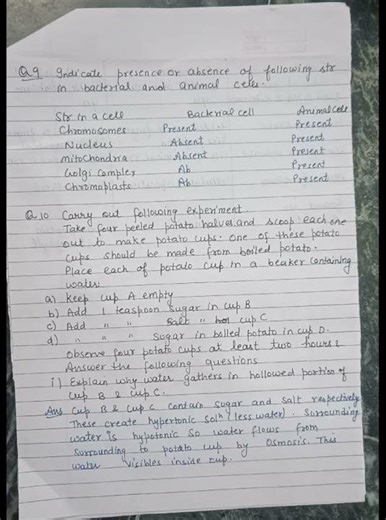 Q9. Indicate presence or absence of following str
in bacterial and animal cells.
Str in a cell Bacterial cell Animal cell
Chromosomes Present Present
Nucleus Absent Present
Mitochondria Absent Present
Golgi Complex Ab Present
Chromoplasts Ab Present
Q10 Carry out following experiment.
Take four peeled potato halves and scoop each one
out to make potato cups. One of these potato
cups should be made from boiled potato.
Place each of potato cup in a beaker containing
water
a) Keep cup A empty
b) Add 1 teaspoon sugar in cup B
c) Add " " Salt " cup C
d) " " " Sugar in boiled potato in cup D.
Observe four potato cups at least two hours &
Answer the following questions
i) Explain why water gathers in hollowed portion of
cup B & cup C.
Ans Cup B & cup C contain sugar and salt respectively
These create hypertonic solⁿ (less water). Surrounding
water is hypotonic so water flows from
surrounding to potato cup by Osmosis. This
water visibles inside cup.